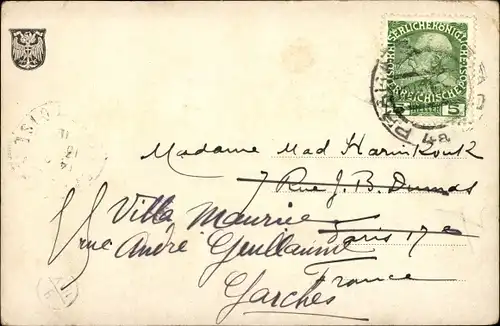 KAISERLICHE KÖNIGLICHE
ÖSTERREICHISCHE POST
5 HELLER 5
PRA
Madame Mad Harinkouk
7 Rue J. B. Dumas
Villa Maurice Paris 17e
rue André Guillaume
France
Garches